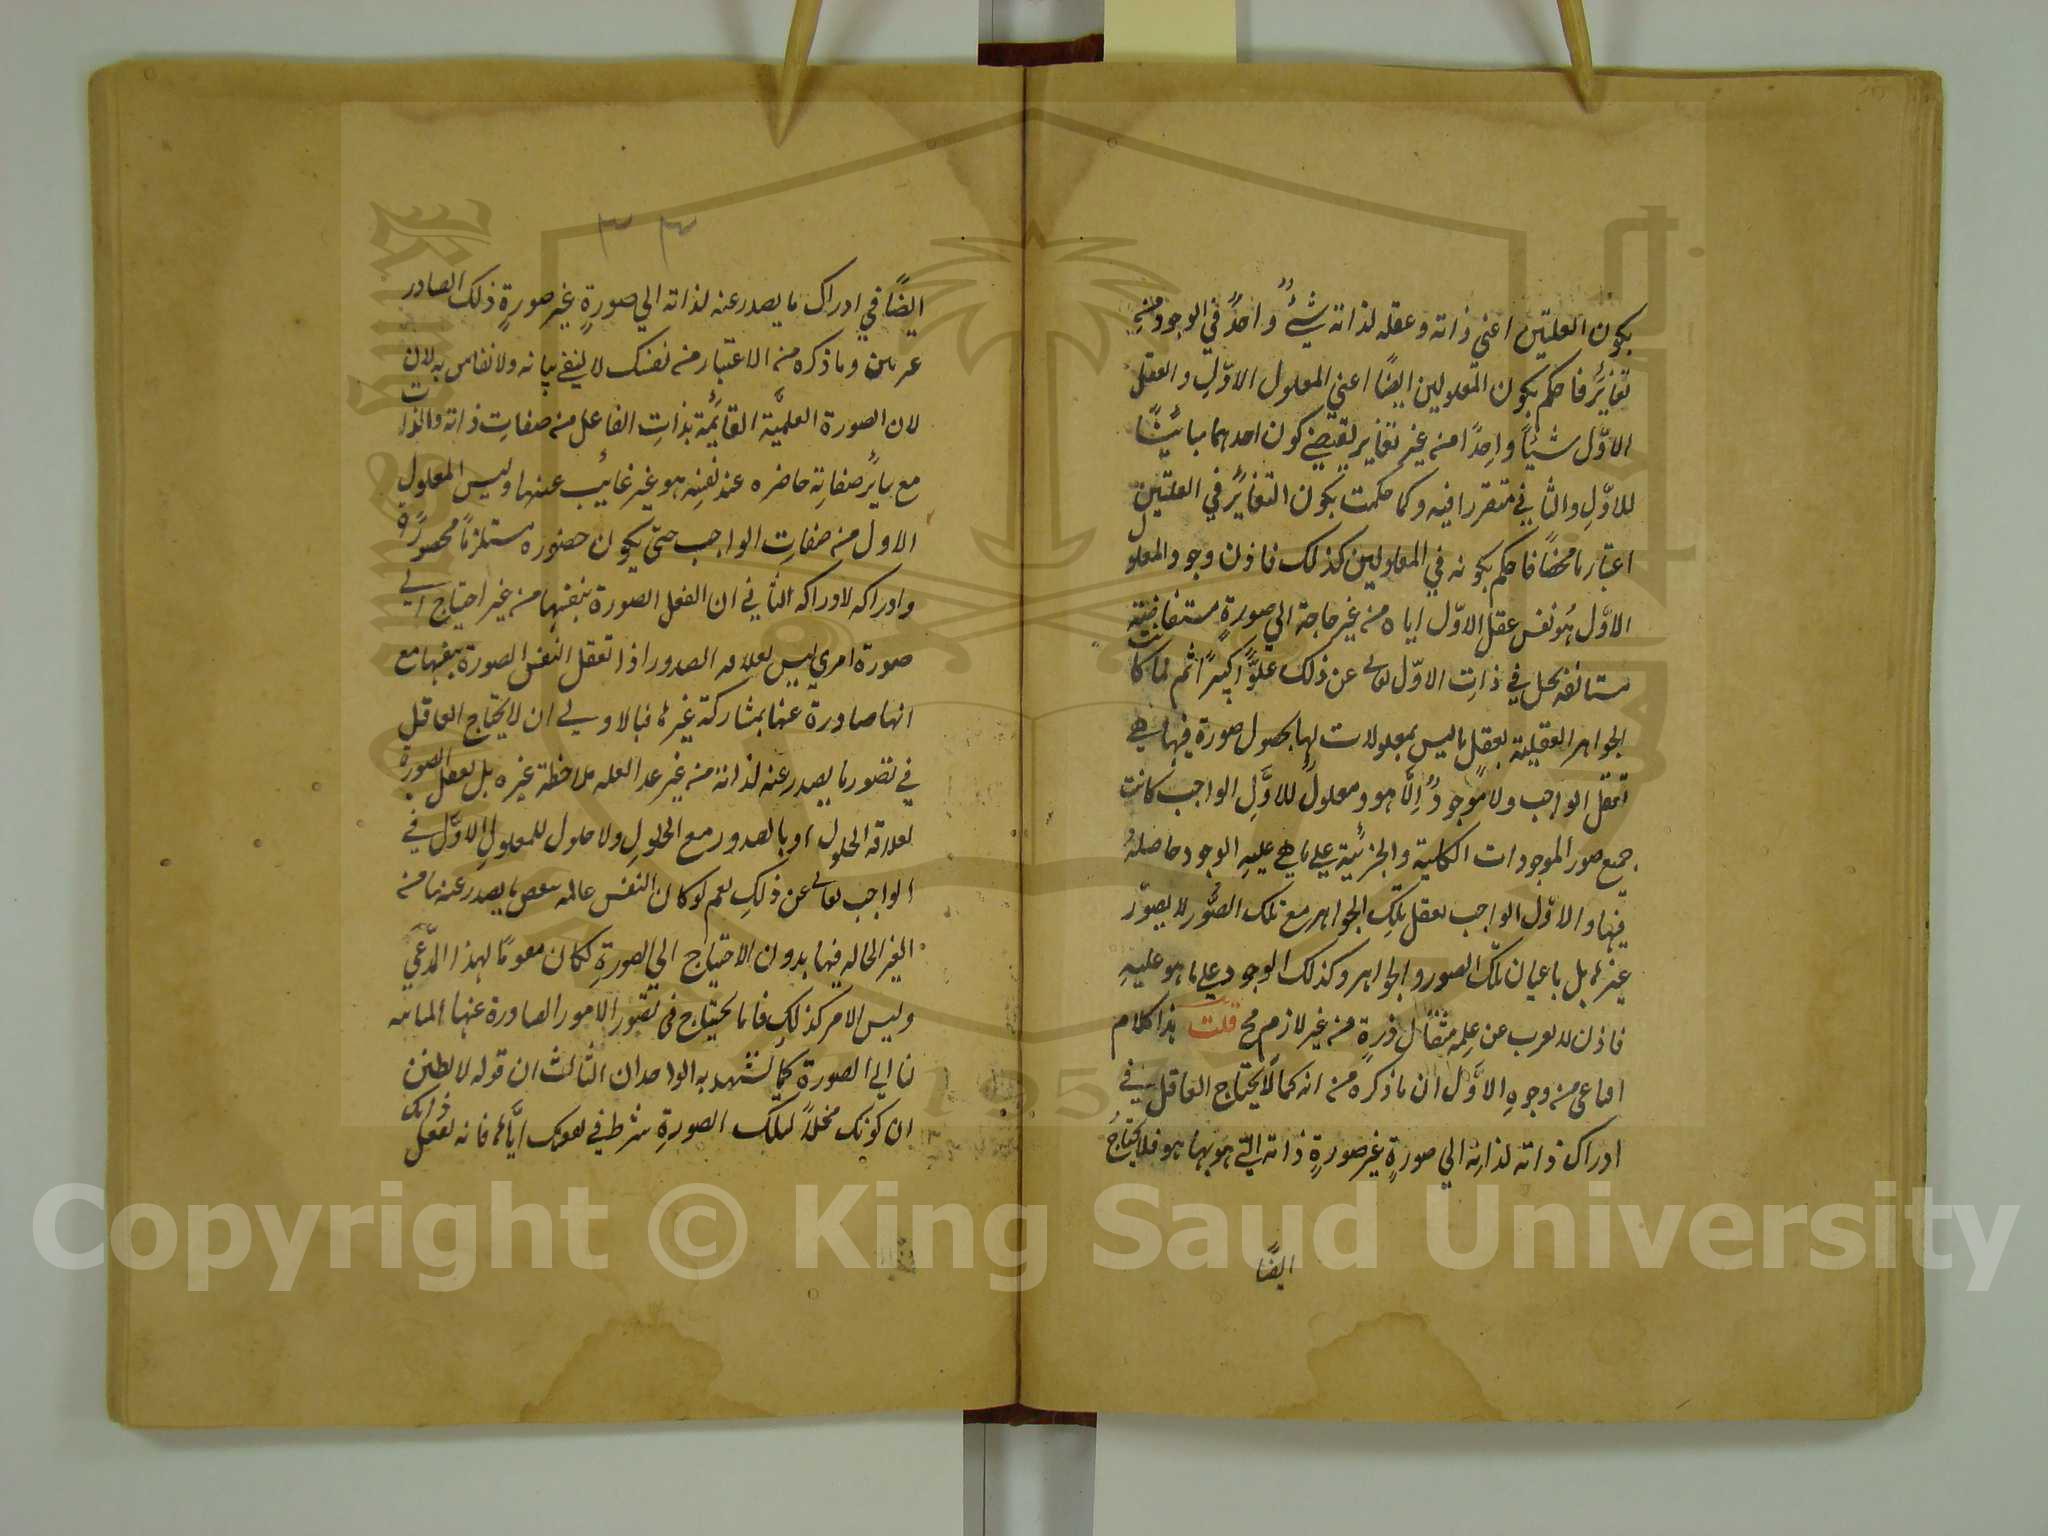 بكون العلتين اعني ذاته وعقله لذاته شئٌ واحدٌ في الوجود من غير
تغايرٍ فاحكم بكون المعلولين ايضًا اعني المعلول الاوّلِ والعقل
الاوّل شيئًا واحِدًا من غير تغاير يقتضي كون احدهما مبائنًا
للاوّلِ والثاني متقررا فيه وكما حكمت بكون التغايرُ في العلتين
اعتباريا محضًا فاحكم بكونه في المعلولين كذلك فاذن وجود المعلول
الاوّل هُو نفس عقل الاوّل اياه من غير حاجة الي صورةٍ مستفاضة
مستانفه تحل في ذات الاوّل تعالى عن ذلك علوًّا كبيرًا ثم لما كانت
الجواهر العقلية تعقل ما ليس بمعلولات لها بحصول صورة فيها وهي
تعقل الواجب ولا موجودٌ اِلّا هو ومعلولٌ للاوّلِ الواجب كانت
جميع صور الموجودات الكلية والجزئية علي ما هي عليهِ الوجود حاصلهً
فيها والاوّل الواجب يعقل تلكِ الجواهر مع تلك الصُّور لا بصوّر
غيرها بل باعيان تلك الصور والجواهر وكذلك الوجود علي ما هو عليهِ
فاذن لا يعزب عن علِمه مثقال ذرةٍ من غير لازم مح قلت هذا كلام
اقناعى من وجوهِ الاوّل ان ما ذكره من انه كما لا يحتاج العاقل في
ادراك ذاته لذاته الي صورةٍ غير صورةٍ ذاته التي هو بها هو فلا يحتاجُ
ايضًا
٣٣
ايضًا في ادراك ما يصدر عنه لذاته الي صورةٍ غير صورةٍ ذلك الصادر
غير بين وما ذكره من الاعتبار من نفسك لا يفي ببيانه ولا نقاس به لان
لان الصورة العلميَّة القائمة بذاتِ الفاعل من صفاتِ ذاته والذات
مع سائر صفاتِه حاضره عند نفسِه هو غير غائب عنها وليس المعلول
الاول من صفاتِ الواجب حتي يكون حضوره مستلزمًا لحضورهً
وادراكه لادراكه الثاني ان العقل الصورة بنفسها من غير احتياج الي
صورة امري ليس لعلاقه الصدور اذا تعقل النفس الصورة بنفسها مع
انها صادرة عنها بمشاركة غيرها فبالاولي ان لا يحتاج العاقل
في تصور ما يصدر عنه لذاته من غير مدالعله ملاحظة غيره بل تعقل الصورة
لعلاقه الحلول او بالصدور مع الحلولِ ولا حلول للمعلولِ الاوّل في
الواجب تعالى عن ذلكِ نعم لو كان النفس عالمه ببعض ما يصدر عنها من
الغير الحاله فيها بدون الاحتياج الي الصورةِ لكان مقومًا لهذا المدّعي
وليس الامر كذلكِ فانا نحتاج في تصور الامور الصادرة عنها المباينه
لنا الي الصورة كما يشهد به الواجدان الثالث ان قوله لا تظنن
ان كونك محلاً لتلك الصورةِ شرط في تعقلك ايّاها فانه تعقل ذاتك